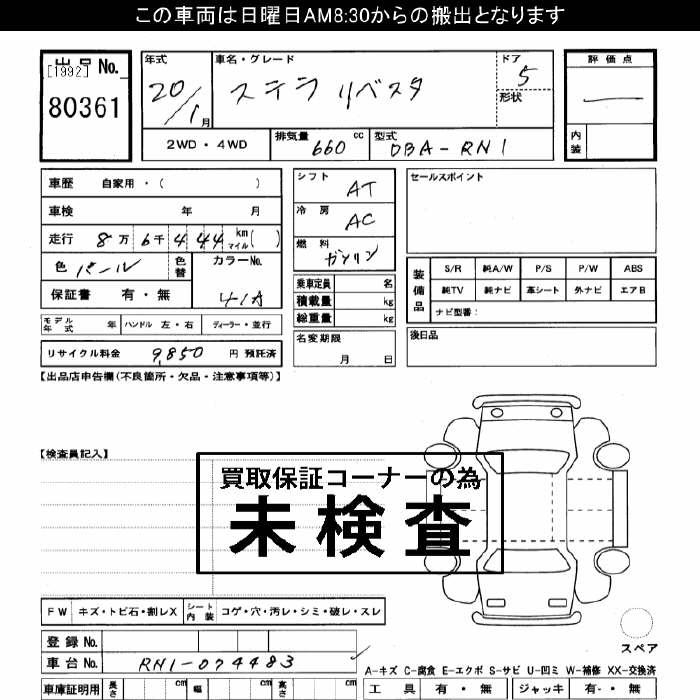 この車両は日曜日AM8:30からの搬出となります
出品 No.
[1992]
80361
年式
20/1月
車名・グレード
ステラ リベスタ
ドア
5
形状
評価点
内装
2WD・4WD
排気量 660 cc
型式 DBA-RN1
車歴 自家用・( )
車検 年 月
走行 8万 6千 4 44 km マイル( )
色 パール
色替
カラーNo.
41A
保証書 有・無
シフト AT
冷房 AC
燃料 ガソリン
乗車定員 名
積載量 kg
総重量 kg
セールスポイント
装備品
S/R 純A/W P/S P/W ABS
純TV 純ナビ 革シート 外ナビ エアB
ナビ型番:
モデル年式 年 ハンドル 左・右 ディーラー・並行
名変期限
月 日
後日品
リサイクル料金 9,850 円 預託済
【出品店申告欄(不良箇所・欠品・注意事項等)】
【検査員記入】
買取保証コーナーの為
未検査
FW キズ・トビ石・割レX シート内装 コゲ・穴・汚レ・シミ・破レ・スレ
登録No.
車台No. RN1-074483
スペア
A-キズ C-腐食 E-エクボ S-サビ U-凹ミ W-補修 XX-交換済
車庫証明用 長さ cm 幅 cm 高さ cm
工具 有・無 ジャッキ 有・無